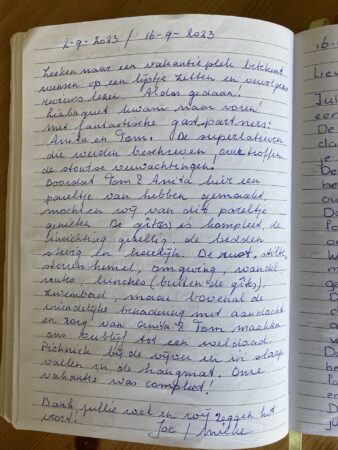 2-9-2023 / 16-9-2023
Zoeken naar een vakantie plek betekent
wensen op een lijstje zetten en vervolgens
reviews lezen. Aldus gedaan!
kwam naar voren
met fantastische gastpartners:
Anita en Tom. De superlatieven
die werden beschreven, overtroffen
de stoutse verwachtingen.
Doordat Tom & Anita hier een
pareltje van hebben gemaakt,
mochten wij van dit pareltje
genieten. De gîte(s) is kompleet, de
inrichting gezellig, de bedden
stevig en heerlijk. De rust, stilte,
sterrenhemel, omgeving, wandel
routes, lunches (buiten de gîte),
zwembad, maar bovenal de
vriendelijke benadering met aandacht
en zorg van Anita & Tom maakten
ons verblijf tot een weldaad.
Picknick bij de vijver en in slaap
vallen in de hangmat. Onze
vakantie was compleet!
Dank jullie wel en wij zeggen het
voort.
16-
Lie
Jul
een
De